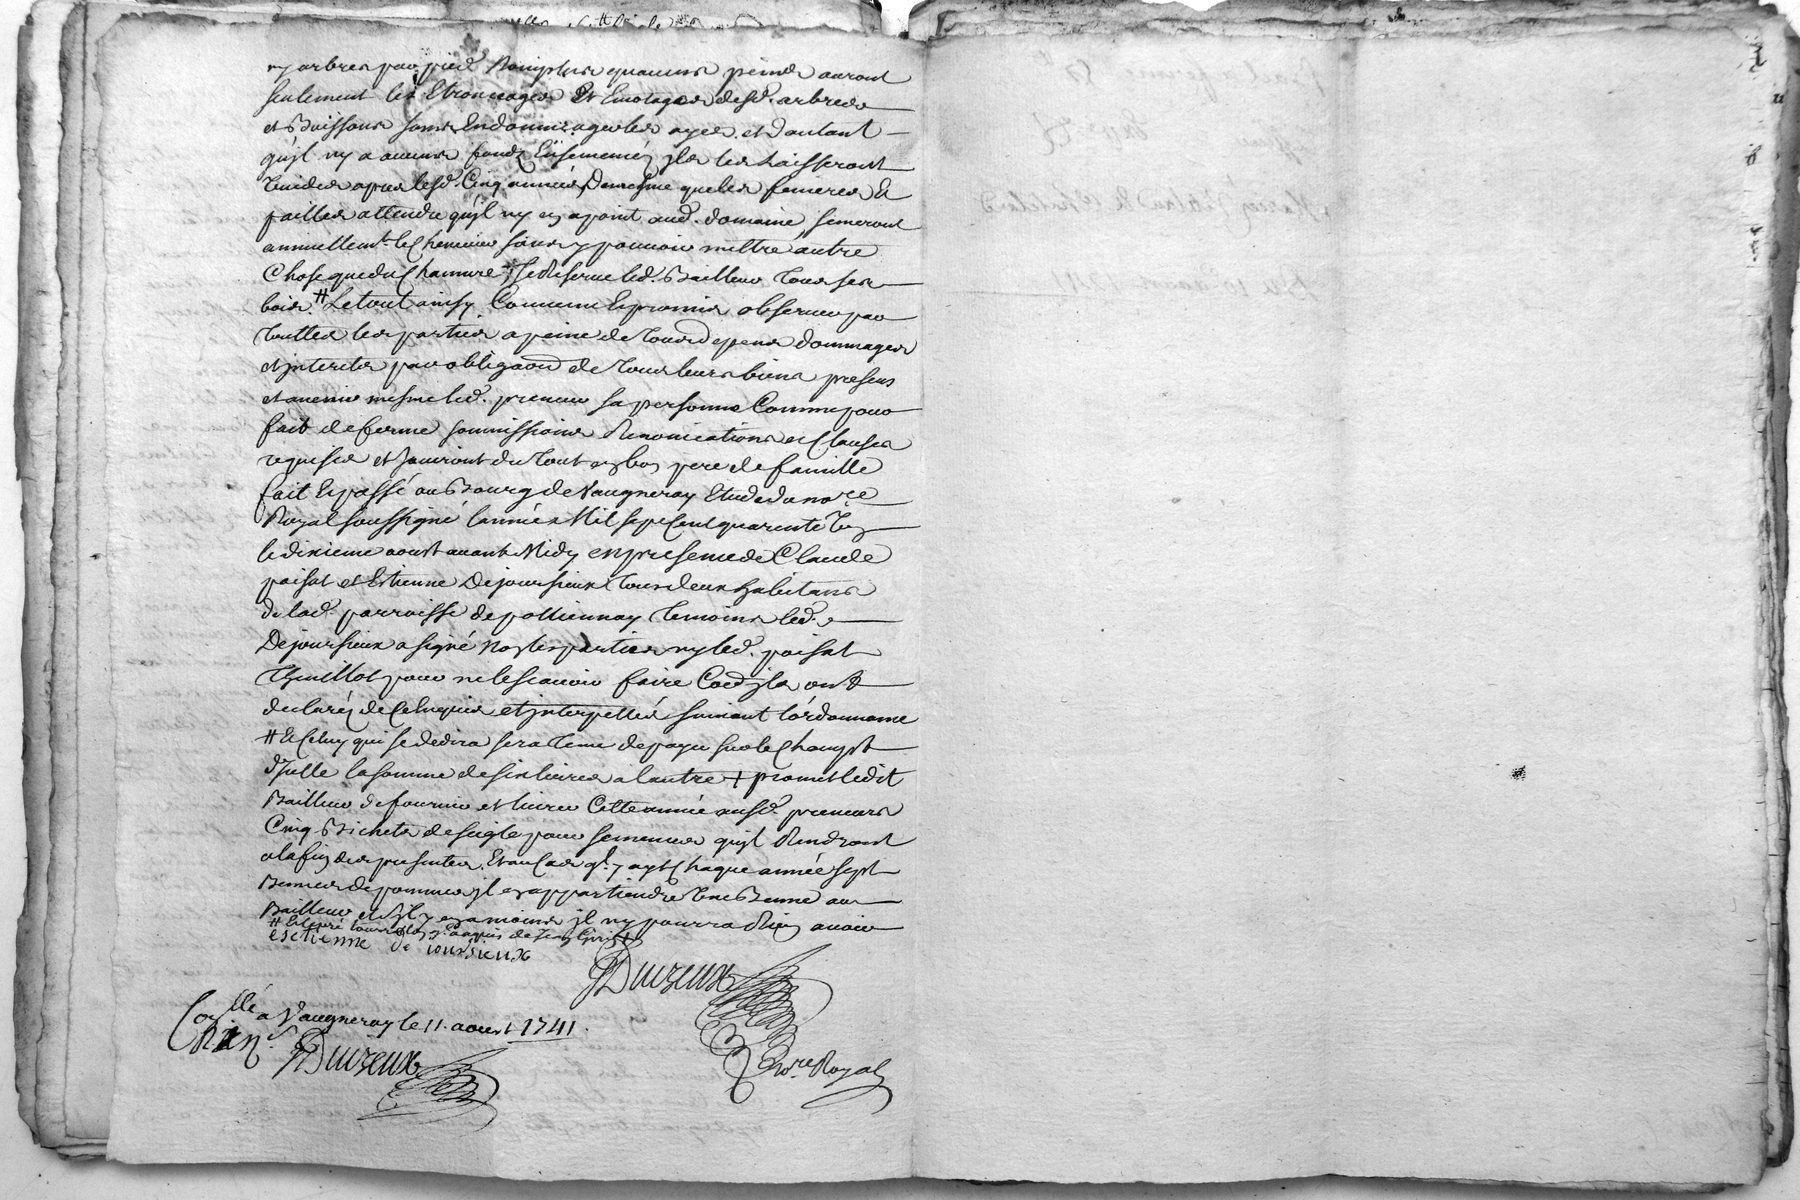 ny arbres par pied Nomplus quaucuns preneurs auront
seulement les Etronçages Et Emotages desd. arbres
et Buissons sans Endommager les ayes et dautant
qujl ny a aucuns fondz Ensemencéz jls les Laisseront
vuides apres lesd. Cinq années De mesme que les femeres Et
pailles attendu quil ny en a point aud. domaine, semeront
annuellemt. le Chenevier sans y pouvoir mettre autre
Chose que du Chanvre, Se Reserve led. Bailleur Tous ses
bois # Le tout ainsy Convenu Et promis observer par
touttes les parties a peine de Tous depens dommages
et jnterets par obligaon de Tous leurs biens presens
et avenir mesme led. preneur sa personne Comme pour
fait de ferme soumissions Renonciations et Clauses
requises et Jouiront du Tout en bon pere de famille
fait Et passé au Bourg de Vaugneray Etude du nore
Royal soussigné lannée Mil sept Cent quarente Un
le dixieme aoust avant Midy en presence de Claude
poisat et Estienne Dejoursieux Tous deux habitans
de lad. parroisse de pollionnay Temoins led.
Dejoursieux a signé Non les parties ny led. poisat
Thuillot pour ne le scavoir faire Co[e] jls ont
declaréz de Ce Enquis et jnterpellés suivant lordonnance
# Et Celuy qui se dedira sera Tenu de payer sur le Champt
Jcelle la somme de six livres a lautre + promet ledit
Bailleur de fournir et livrer Cette année ausd. preneurs
Cinq Bichets de seigle pour semences qujl Rendront
a la fin des presentes. Et au Cas ql. y ayt Chaque année sept
Bennes de pommes jl en appartiendra Une Benne au
Bailleur et sjl y en a moins jl ny pourra Rien avoir
estienne de iousieux
Duizeux
Nore Royal
Corllé a Vaugneray le 11. aoust 1741.
Duizeux